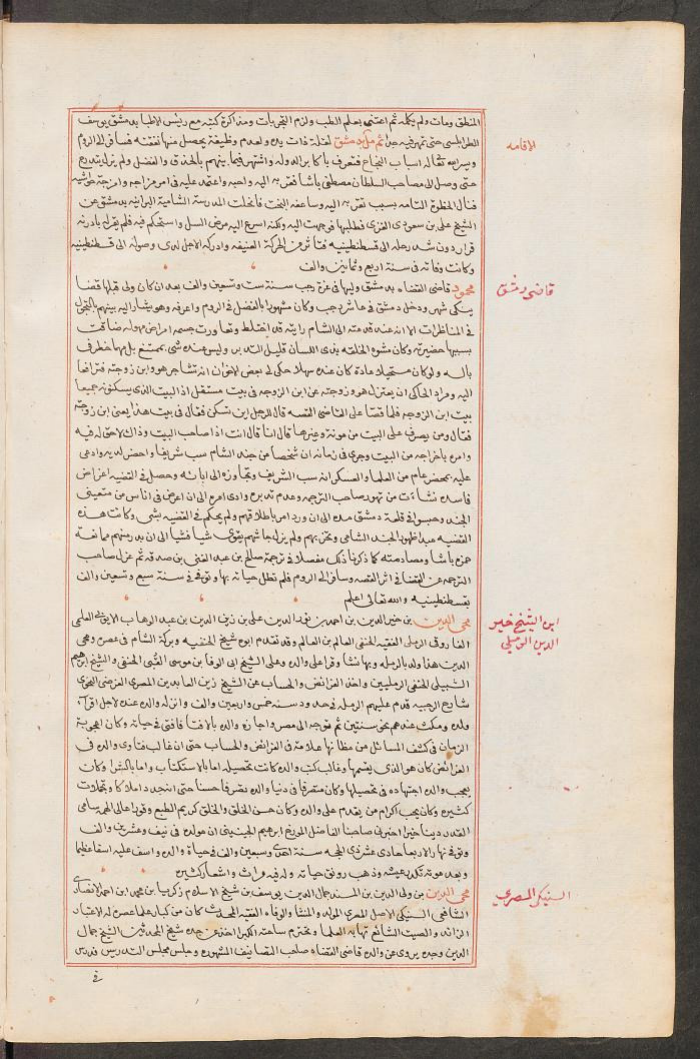 المنطق ومات ولم يكمله ثم اعتنى بعلم الطب ولزم التجربات ومذاكرة كتبه مع رئيس الاطبا بدمشق يوسف
الطرابلسى حتى تمهر فيه جدا ثم مل بدمشق لقلة ذات يده ولعدم وظيفة يحصل منها نفقته فسافر الى الروم
الاقامه
ويسر الله تعالى له اسباب النجاح فتعرف باكابر الدوله واشتهر فيما بينهم بالحذق والفضل ولم يزل يتدرج
حتى وصل الى مصاحب السلطان مصطفى باشا فقربه اليه واحبه واعتمد عليه فى امر مزاجه وامزجة حواشيه
فنال الحظوة التامه بسبب تقربه اليه وساعفه البخت فانحلت المدرسة الشامية البرانيه بدمشق عن
الشيخ على بن سعودى الغزى فطلبها فوجهت اليه ولكنه اسرع اليه مرض السل واستحكم فيه فلم يقر له بادرنه
قرار دون شد رحله الى قسطنطينيه فتأثر من الحركة العنيفه وادركه الاجل لدى وصوله الى قسطنطينيه
وكانت وفاته فى سنة اربع وثمانين والف
محمود قاضى القضاه بدمشق وليها فى غرة رجب سنة ست وتسعين والف بعد ان كان ولى قبلها قضا
قاضى دمشق
ينكى شهر ودخل دمشق فى عاشر رجب وكان مشهورا بالفضل فى الروم واعرفه وهو يشار اليه بينهم بالتجول
فى المناظرات الا انه عند قدمته الى الشام رايته قد اختلط وتعاورت جسمه امراض مهوله ضاقت
بسببها حضيرته وكان مشوه الخلقه بذى اللسان قليل التدبر وليس عنده شى يمتنع بل مهما خطر فى
باله ولو كان مستحيلا عادة كان عنده سهلا حكى لى بعض الاخوان انه تشاجر هو وابن زوجته فترافعا
اليه ومراد الحاكى ان يعتزل هو وزوجته عن ابن الزوجه فى بيت مستقل اذ البيت الذى يسكنونه جميعا
بيت ابن الزوجه فلما قصا على القاضى القصه قال للرجل اين تسكن فقال فى بيت هذا يعنى ابن زوجته
فقال ومن يصرف على البيت من مونة وغيرها قال انا قال انت اذا صاحب البيت وذاك لا حق له فيه
وامره باخراجه من البيت وجرى فى زمانه ان شخصا من جند الشام سب شريفا واحضر لديه وادعى
عليه بمحضر عام من العلما والعسكر انه سب الشريف وتجاوزه الى ابائه وحصل فى القضيه اغراض
فاسده نشأت من تهور صاحب الترجمه وعدم تدبره وادى امره الى ان اعرض فى اناس من متعينى
الجند وحبسوا فى قلعة دمشق مده الى ان ورد امر باطلاقهم ولم يحكم فى القضيه بشى وكانت هذه
القضيه مبدا ظهور الجند الشامى وتحزبهم ولم يزل جاشهم يقوى شيا فشيا الى ان بدر منهم ممانعة
حمزه باشا ومصادمته كما ذكرنا ذلك مفصلا فى ترجمة صالح بن عبد الغنى بن صدقه ثم عزل صاحب
الترجمه عن القضا فى اثر القصه وسافر الى الروم فلم تطل حياته بها وتوفى فى سنة سبع وتسعين والف
بقسطنطينيه والله تعالى اعلم
محى الدين بن خير الدين بن احمد بن نور الدين على بن زين الدين بن عبد الوهاب الايوبى العليمى
ابن الشيخ خير
الدين الرملى
الفاروقى الرملى الفقيه الحنفى العالم بن العالم وقد تقدم ابوه شيخ الحنفيه وبركة الشام فى عصره ومحى
الدين هذا ولد بالرمله وبها نشأ وقرا على والده وعلى الشيخ ابى الوفا بن موسى القبى الحنفى والشيخ ابرهيم
الشبيلى الحنفى الرمليين واخذ الفرائض والحساب عن الشيخ زين العابدين المصرى الفرضى النحوى
شارح الرحبيه قدم عليهم الرمله فى حدود سنه خمس واربعين والف وانزله والده عنده لاجل اقراء
ولده ومكث عندهم نحو سنتين ثم توجه الى مصر واجازه والده بالافتا فافتى فى حياته وكان اعجوبة
الزمان فى كشف المسائل من مظانها علامة فى الفرائض والحساب حتى ان غالب فتاوى والده فى
الفرائض كان هو الذى يقسمها وغالب كتب والده كانت تحصيله اما بالاستكتاب واما بالشرا وكان
يعجب والده اجتهاده فى تحصيلها وكان متصرفا فى دنيا والده تصرفا حسنا حتى انه جدد املاكا وتجملات
كثيره وكان يحب اكرام من يقدم على والده وكان حسن الخلق والخلق كريم الطبع وقورا عالى الهمه سامى
القدر دينا خيرا اخبرنى صاحبنا الفاضل المورخ ابرهيم الجينينى ان مولده فى نيف وعشرين والف
وتوفى نهار الاربعا حادى عشر ذى الحجه سنة احدى وسبعين والف فى حياة والده واسف عليه اسفا عظيما
وبعد موته تكدر عيشه وذهب رونق حياته وله فيه مراث واشعار كثيره
محى الدين بن ولى الدين بن المسند جمال الدين يوسف بن شيخ الاسلام زكريا بن محمد ابن احمد الانصارى
السنيكى المصرى
الشافعى السنيكى الاصل المصرى المولد والمنشا والوفاه الفقيه المحدث كان من كبار علما عصره له الاعتبار
الزائد والصيت الشائع تهابه العلما وتحترم ساحته الكبرا اخذ عن جده شيخ المحدثين الشيخ جمال
الدين وجده يروى عن والده قاضى القضاه صاحب التصانيف المشهوره وجلس مجلس التدريس فدرس
فى